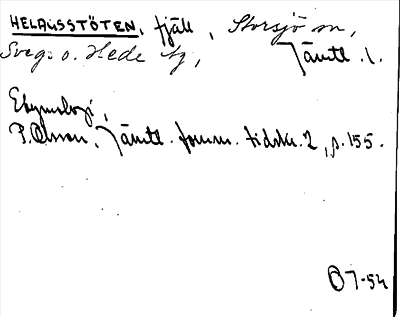 HELAGSSTÖTEN, fjäll, Storsjö sn,
Sveg o. Hede tg, Jämtl. l.
Etymologi,
P. Olsson, Jämtl. fornm. tidskr. 2, s. 155.
O7-54